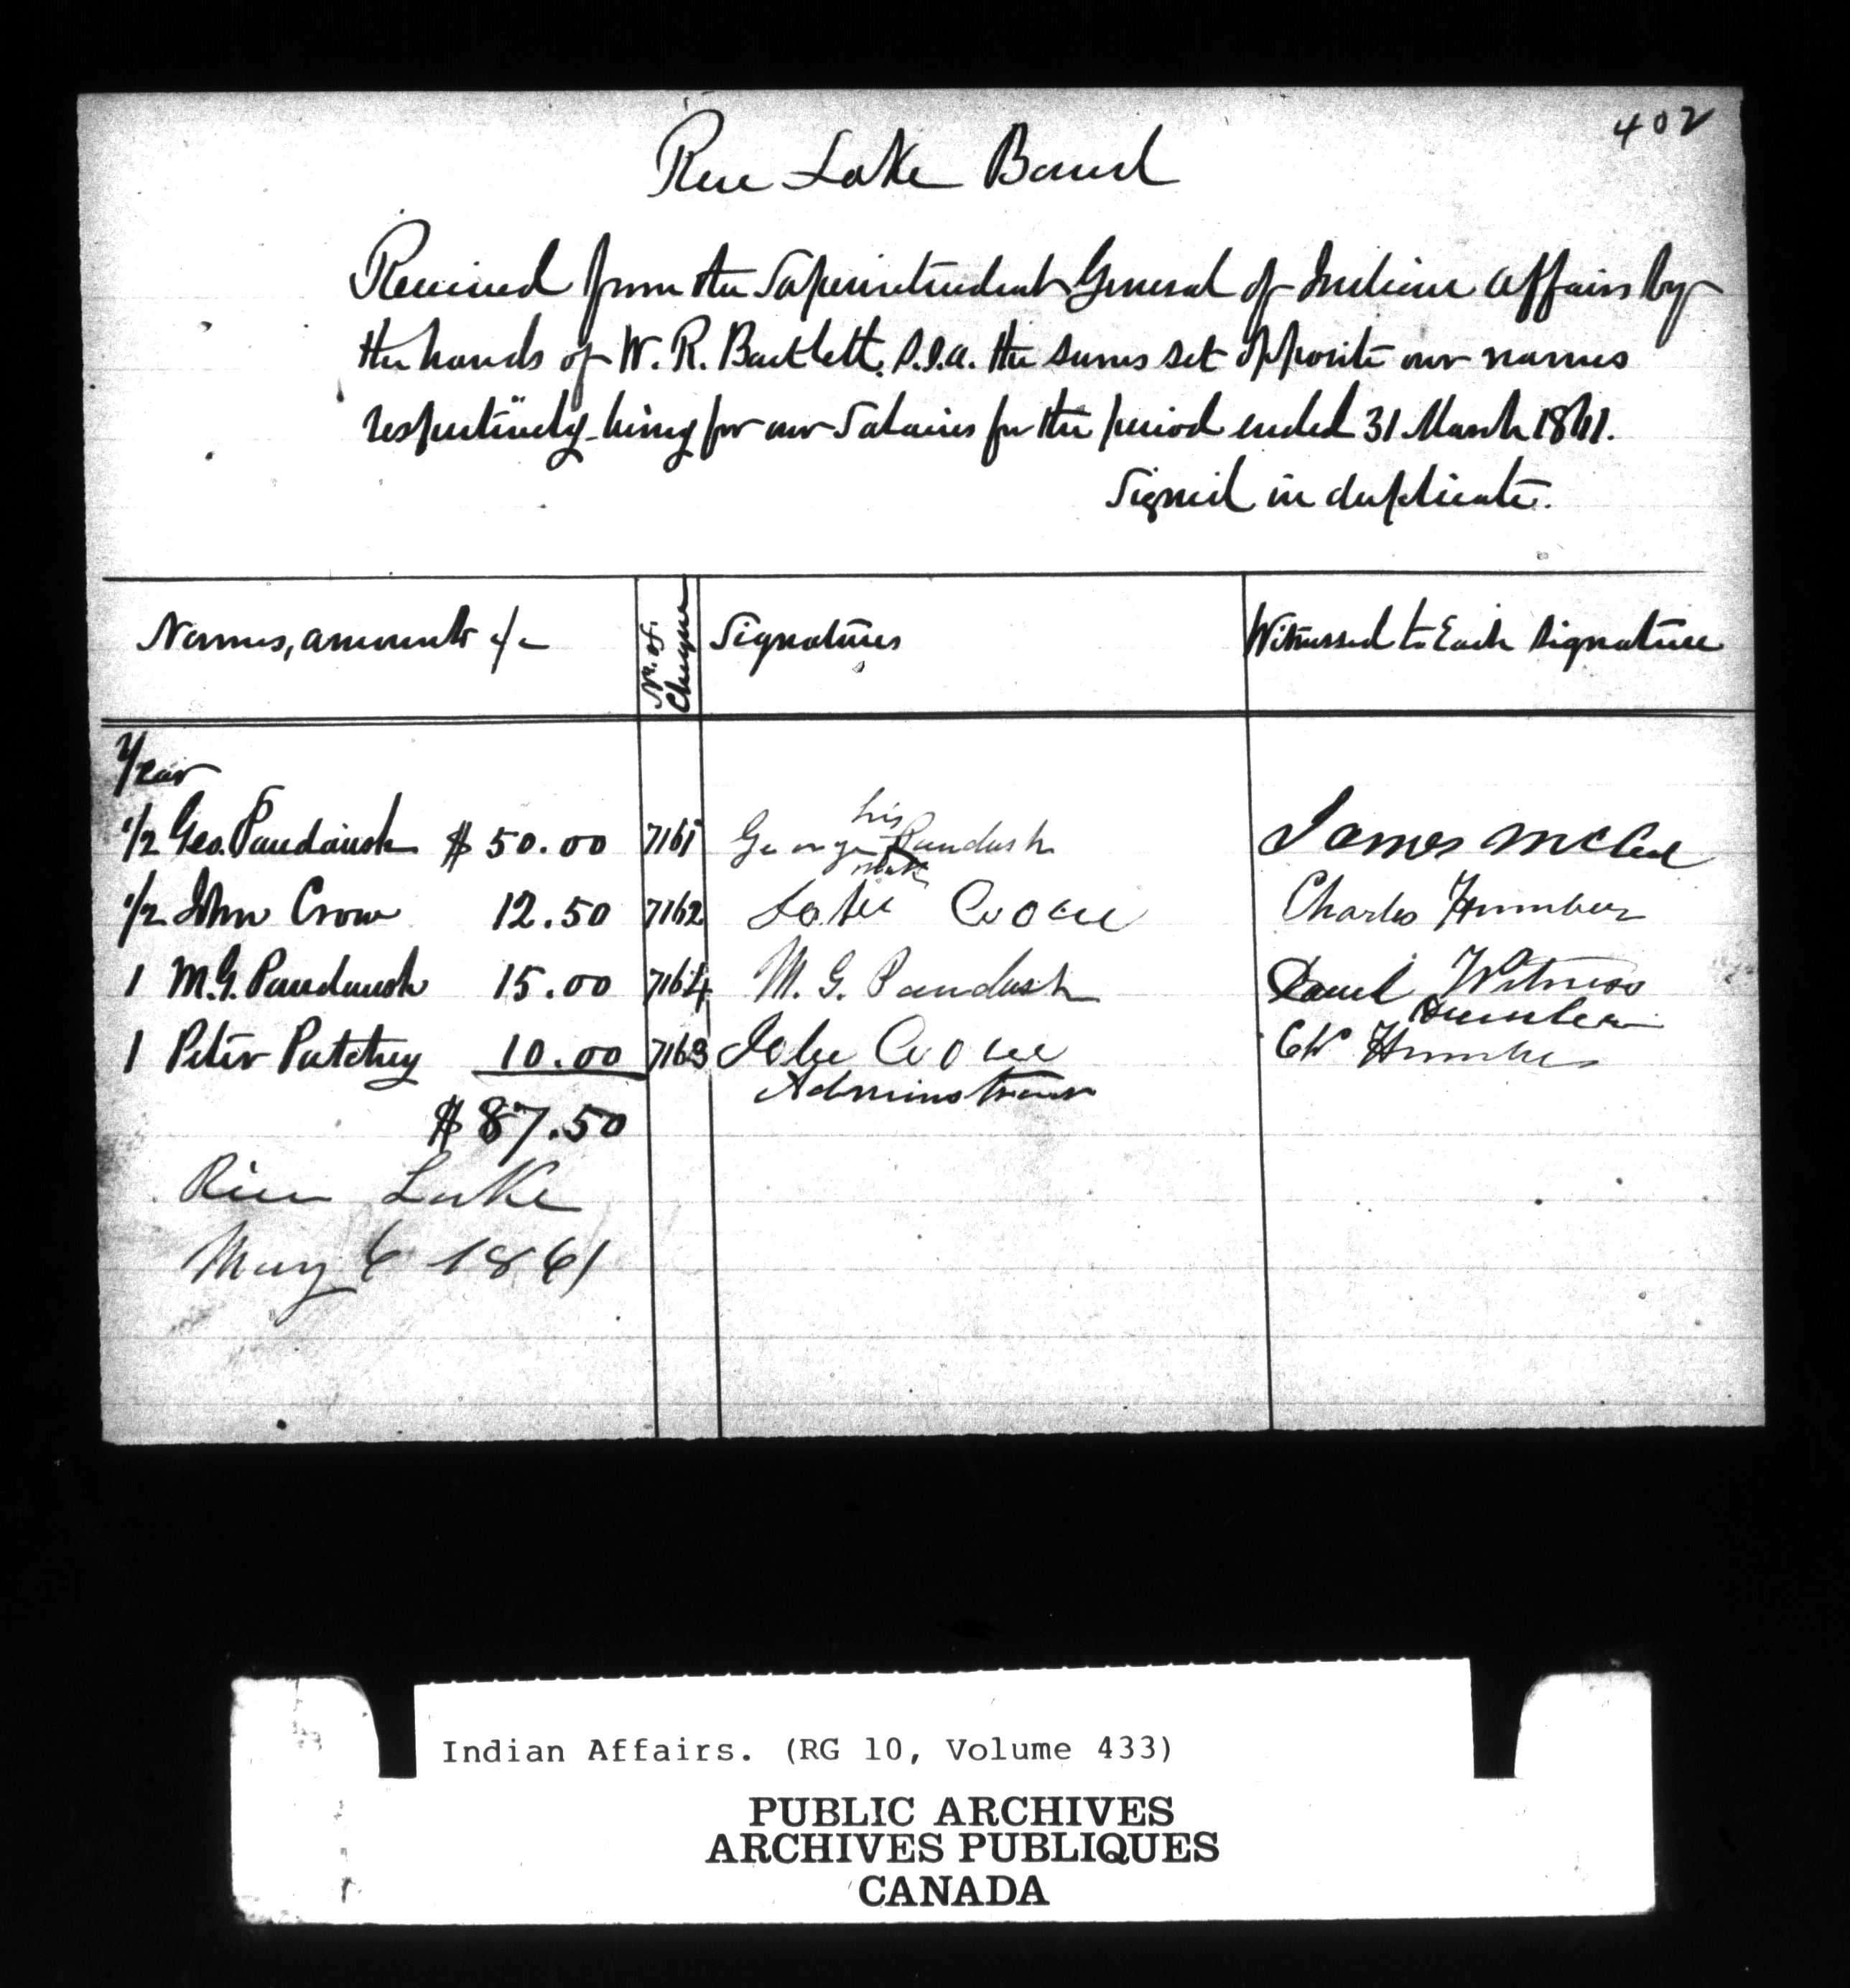 402
Rice Lake Band
Received from the Superintendent General of Indian Affairs by
the hands of W. R. Bartlett, S.I.A. the sums set opposite our names
respectively being for our Salaries for the period ended 31 March 1861.
Signed in duplicate.
Names, amounts &c
No. of Cheque
Signatures
Witnessed to Each Signature
Year
1/2 Geo. Paudaush $50.00 7161 George his mark Paudash James McCue
1/2 John Crow 12.50 7162 John Crowe Charles Humber
1 M.G. Paudaush 15.00 7164 M. G. Paudash Witness
Humber
1 Peter Patchey 10.00 7163 John Crowe CW Humber
Administrator
$87.50
Rice Lake
May 6 1861
Indian Affairs. (RG 10, Volume 433)
PUBLIC ARCHIVES
ARCHIVES PUBLIQUES
CANADA